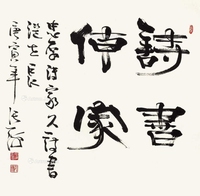 詩書
傳家
忠厚詩家久詩書
澤世長
庚寅年